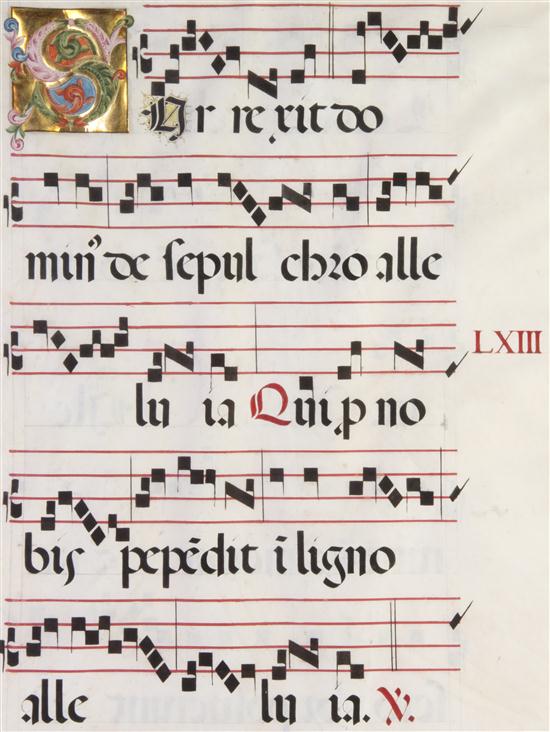 Surrexit do
min9 de sepul chro alle
LXIII
lu ia Qui p̱ no
bis pepēdit ī ligno
alle lu ia. V̷.